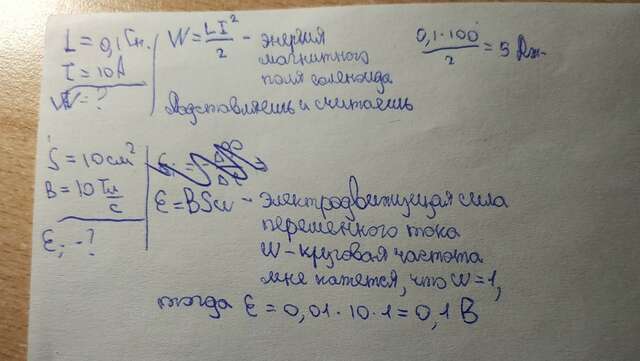 L = 0,1 Гн.
I = 10 А
W = ?
W = LI²/2 - энергия
магнитного
поля соленоида
0,1·100/2 = 5 Дж
Подставляешь и считаешь
S = 10 см²
B = 10 Тл/с
Ɛi - ?
Ɛ = BSω - электродвижущая сила
переменного тока
W - круговая частота
мне кажется, что W = 1,
тогда Ɛ = 0,01·10·1 = 0,1 В